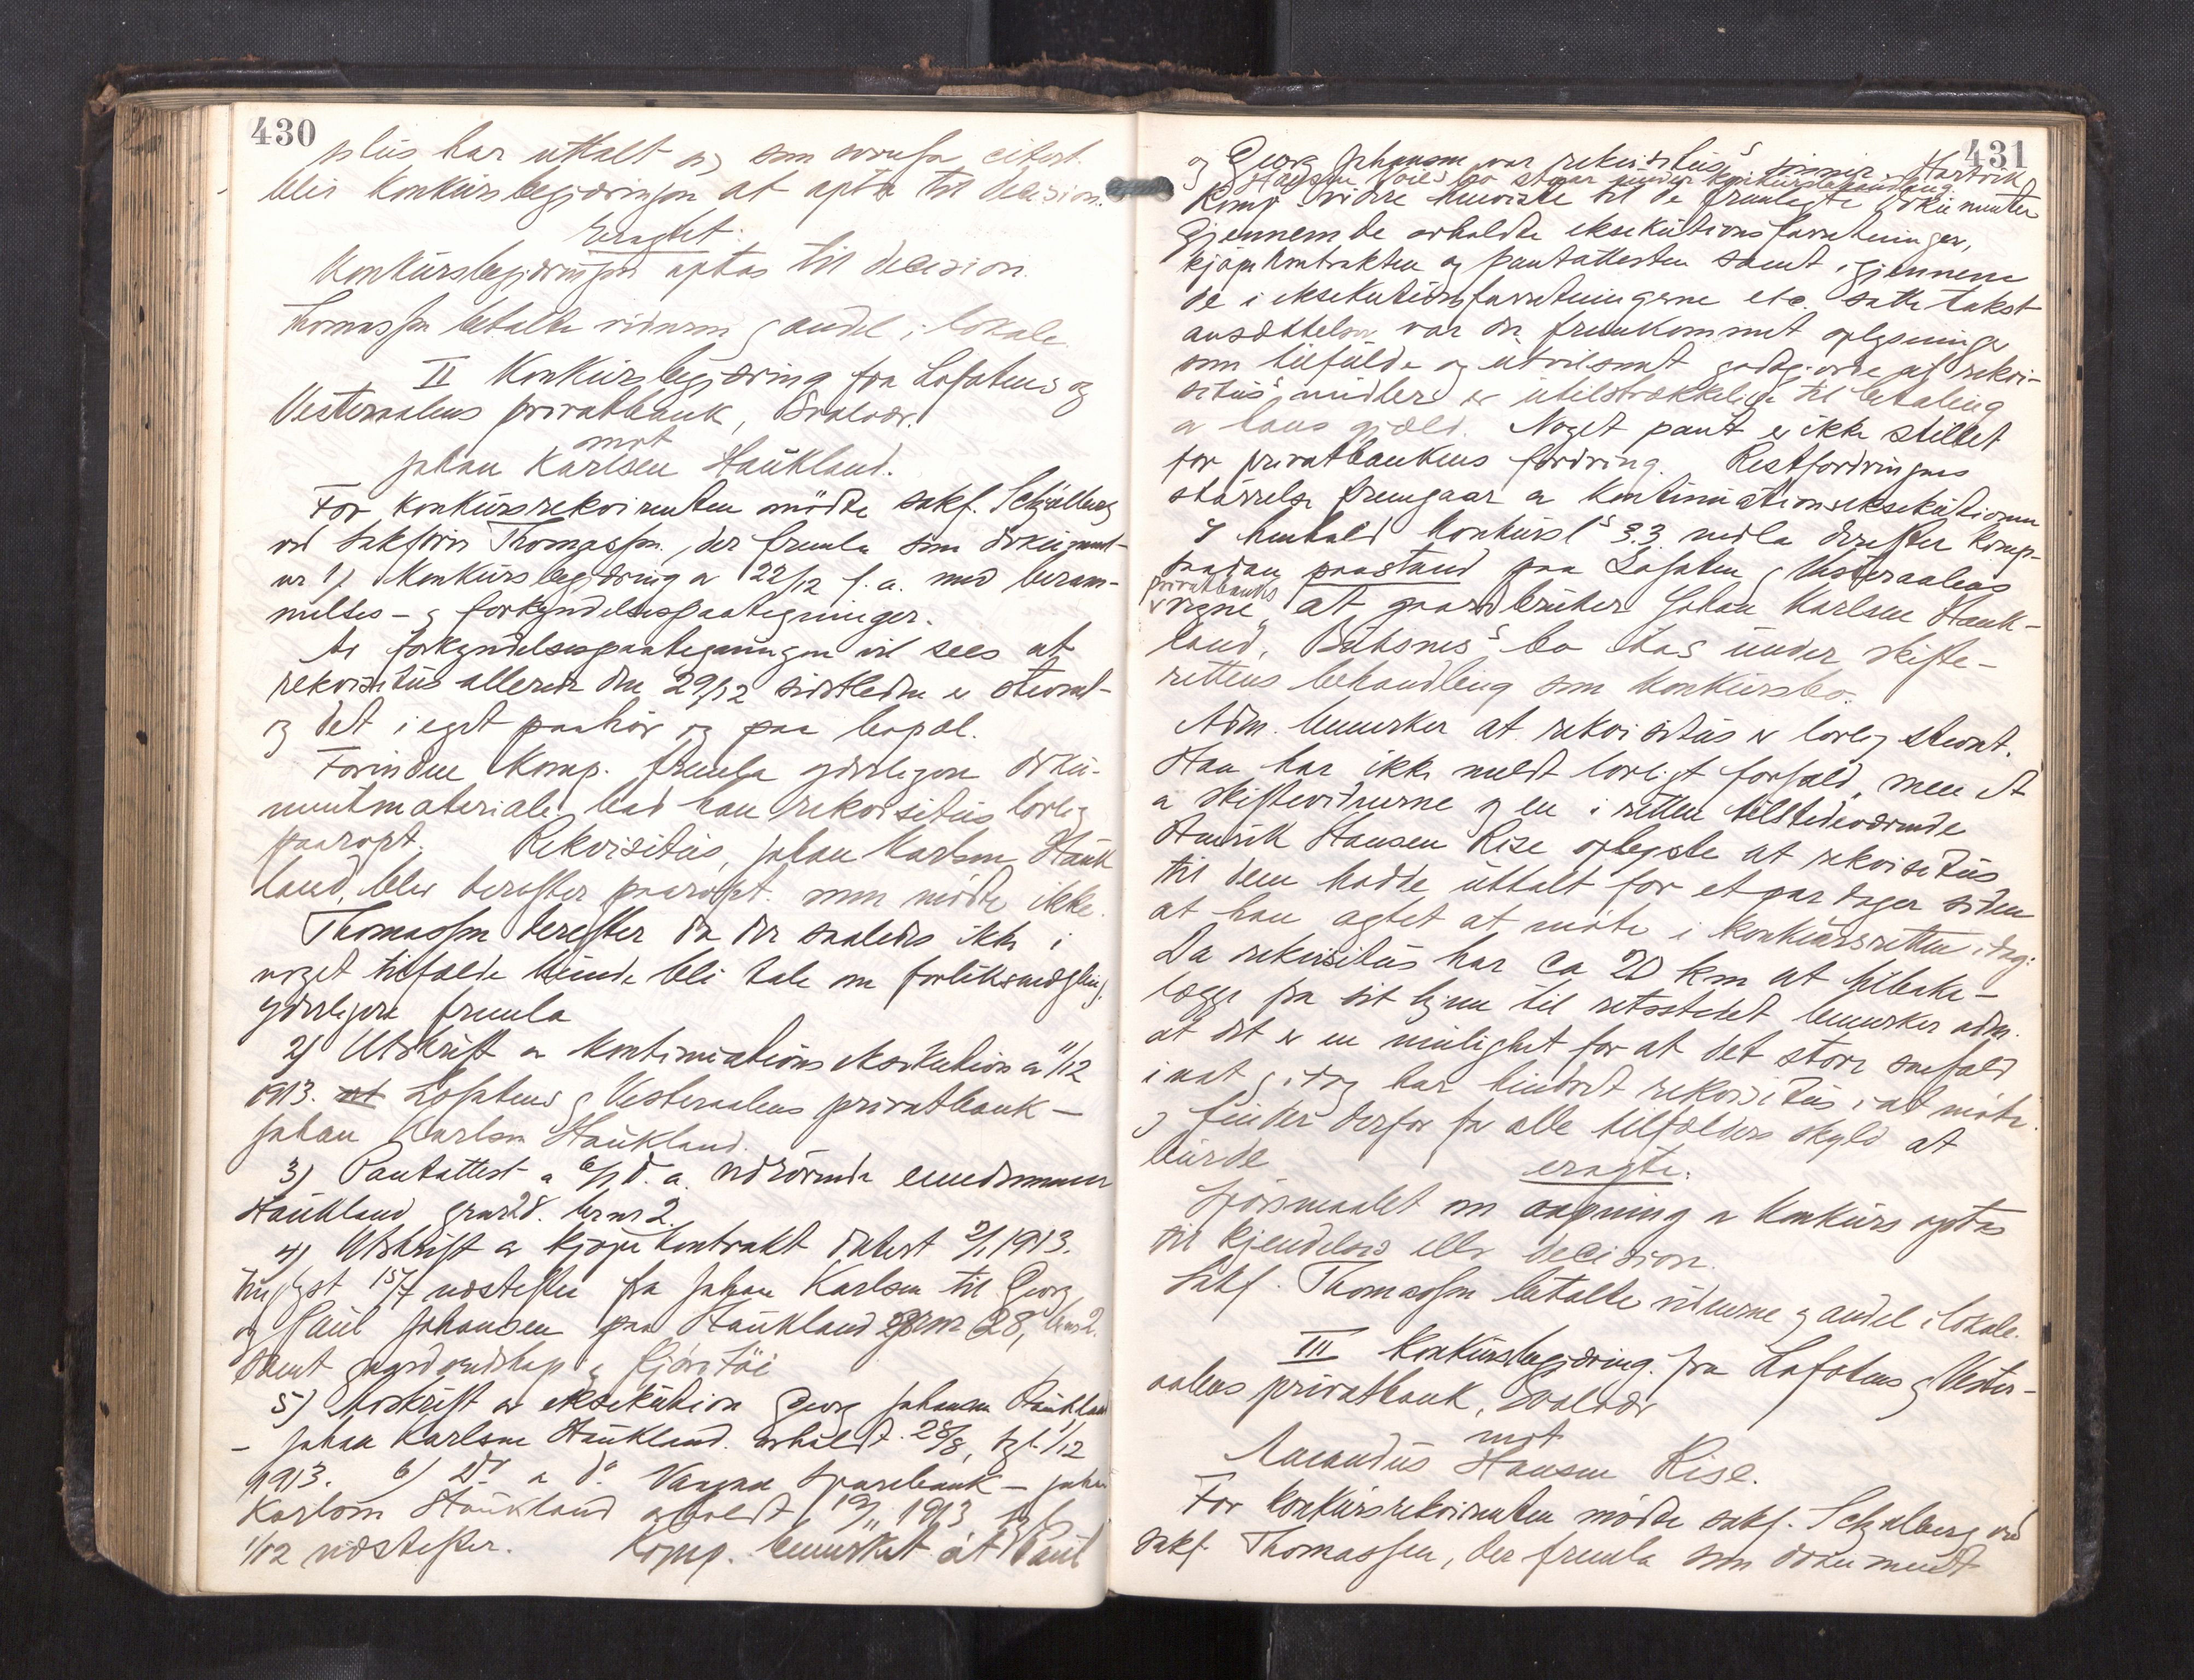 430
plus har uttalt og som ovenfor citert
blir konkursbegjæringen at opta til decision.
eragtet:
Konkursbegjæringen optas til decision.
Thomassen betalte vidnerne og andel i lokale
II Konkursbegjæring fra Lofotens og
Vesteraalens privatbank, Svolvær.
mot
Johan Karlsen Haukland.
For konkursrekvirenten mödte sakf. Schjelberg
ved sakfører Thomassen, der fremla som dokument
nr 1) Konkursbegjæring av 22/12 f.a. med beram-
melses- og forkyndelsespaategninger.
Av forkyndelsespaategningen vil sees at
rekvisitus allerede den 29/12 sidstleden er stevnet
og det i eget paahör og paa bopæl.
Forinden komp. fremla yderligere doku-
mentmateriale bad han rekvisitus lovlig
paaropt. Rekvisitus, Johan Karlsen Hauk
land, blev derefter paaropt men mödte ikke.
Thomassen derefter da der saaledes ikke i
noget tilfælde kunde bli tale om forliksmægling,
yderligere fremla
2) Utskrift av kontinuationseksekution av 11/12
1913. Lofotens og Vesteraalens privatbank -
Johan Karlsen Haukland.
3) Pantattest av 6/1 d.a. vedrörende eiendommen
Haukland grnr 28. brnr 2.
4) Utskrift av kjöpekontrakt datert 2/1 1913.
tinglyst 15/7 næstefter fra Johan Karlsen til Georg
og Paul Johansen paa Haukland grnr 28, brnr 2.
samt gaardredskap og fjöretöi
5) Utskrift av eksekution Georg Johansen Haukland
- Johan Karlsen Haukland. avholdt 28/8, tgl. 1/12
1913. 6) Do av do Vaagan Sparebank - Johan
Karlsen Haukland avholdt 19/11 1913 tgl.
1/12 næstefter. Komp. bemerket at Paul
431
og Georg Johansen var rekvisitus's sönner. Hartvik
Hansen Voies bo staar under konkursbehandling.
Komp. videre henviste til de fremlagte dokumenter
Gjennem de avholdte eksekutionsforretninger,
kjöpekontrakten og pantattesten samt gjennem
de i eksekutionsforretningerne etc. satte takst-
ansættelser var der fremkommet oplysninger
som tilfulde og utvilsomt godtgjorde at rekvi-
situs' midler er utilstrækkelige til betaling
av hans gjæld. Noget pant er ikke stillet
for privatbankens fordring. Restfordringens
störrelse fremgaar av kontinuationseksekutionen
I henhold konkursl's § 3. nedla derefter komp.
saadan paastand paa Lofoten og Vesteraalens
privatbanks
vegne at gaardbruker Johan Karlsen Hauk-
land, Bulsnes's bo tas under skifte-
rettens behandling som konkursbo.
Adm. bemerker at rekvisitus er lovlig stevnt.
Han har ikke meldt lovligt forfald, men et
av skiftevidnerne og en i retten tilstedeværende
Henrik Hansen Rise oplyste at rekvisitus
til dem hadde uttalt for et par dager siden
at han agtet at möte i konkursretten idag.
Da rekvisitus har ca 20 km at tilbake-
lægge fra sit hjem til retsstedet bemerker adm.
at det er en mulighet for at det store snefald
inat og idag har hindret rekvisitus i at möte.
og finder derfor for alle tilfælders skyld at
burde
eragte:
Spörsmaalet om aapning av konkurs optas
til kjendelses eller decision.
Sakf. Thomassen betalte vidnerne og andel i lokale.
III Konkursbegjæring fra Lofotens og Vester-
aalens privatbank, Svolvær
mot
Amandus Hansen Rise.
For konkursrekvirenten mödte sakf. Schjelberg ved
sakf. Thomassen, der fremla som dokument